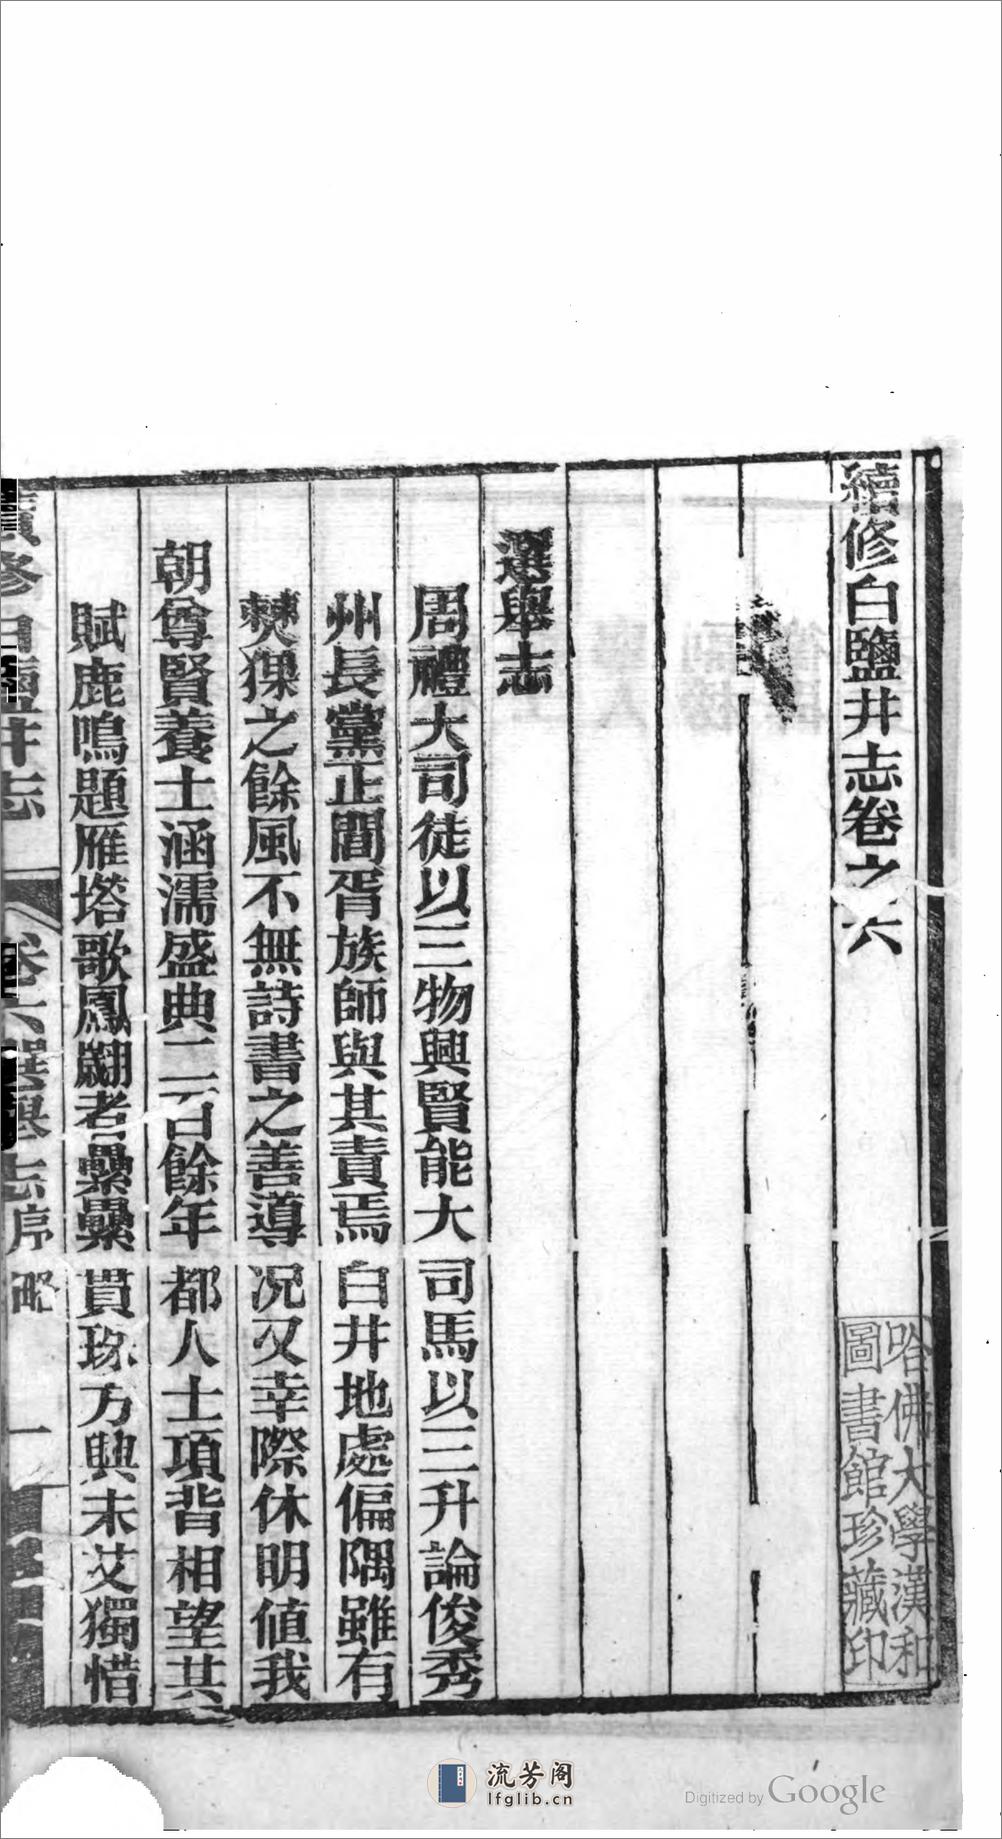 續修白鹽井志卷之六
哈佛大學漢和
圖書館珍藏印
選舉志
周禮大司徒以三物興賢能大司馬以三升論俊秀
州長黨正閭胥族師與其責焉白井地處偏隅雖有
僰猓之餘風不無詩書之善導况又幸際休明值我
朝尊賢養士涵濡盛典二百餘年都人士項背相望其
賦鹿鳴題雁塔歌鳳翽者纍纍貫珠方興未艾獨惜
續修白鹽井志 卷六選舉志序 略 一
流芳阁
lfglib.cn
Digitized by Google